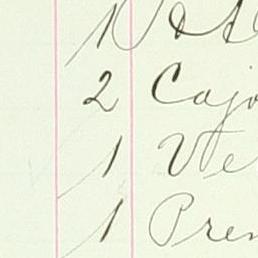 1
2 Cajo
1 Ve
1 Pren